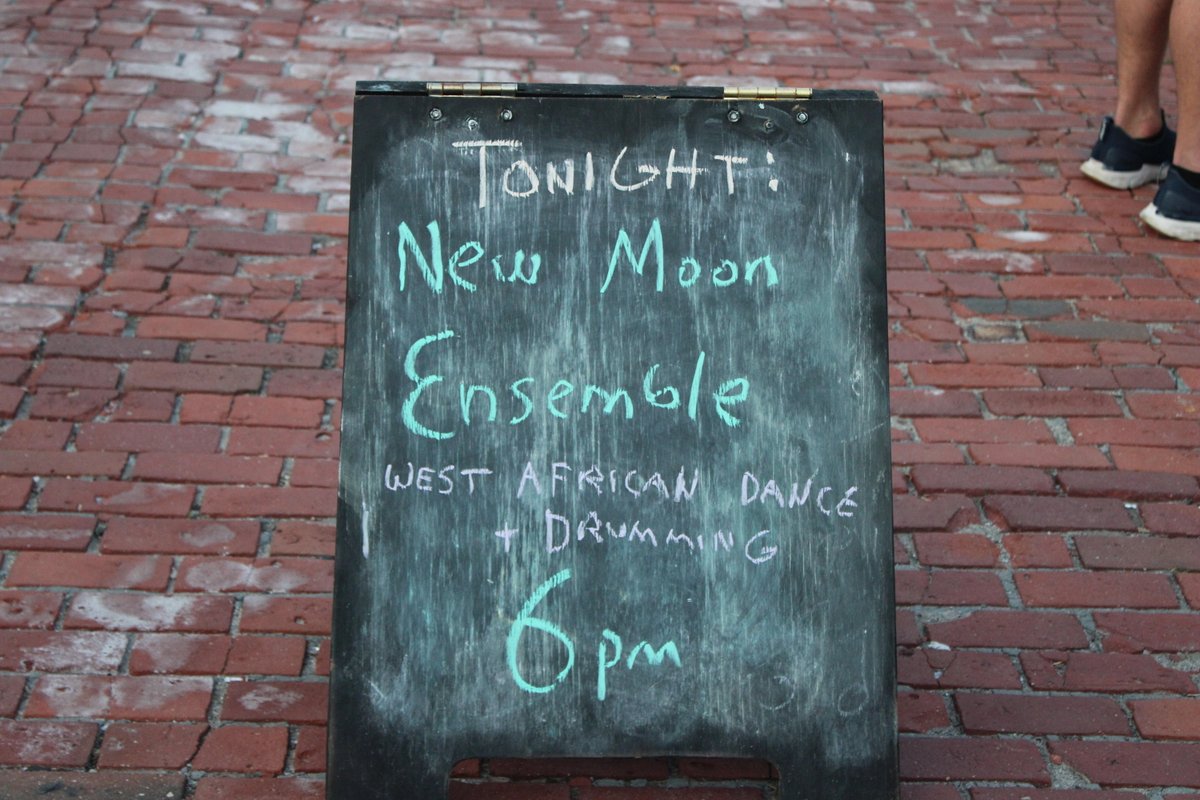 TONIGHT:
New Moon
Ensemble
WEST AFRICAN DANCE
+ DRUMMING
6pm